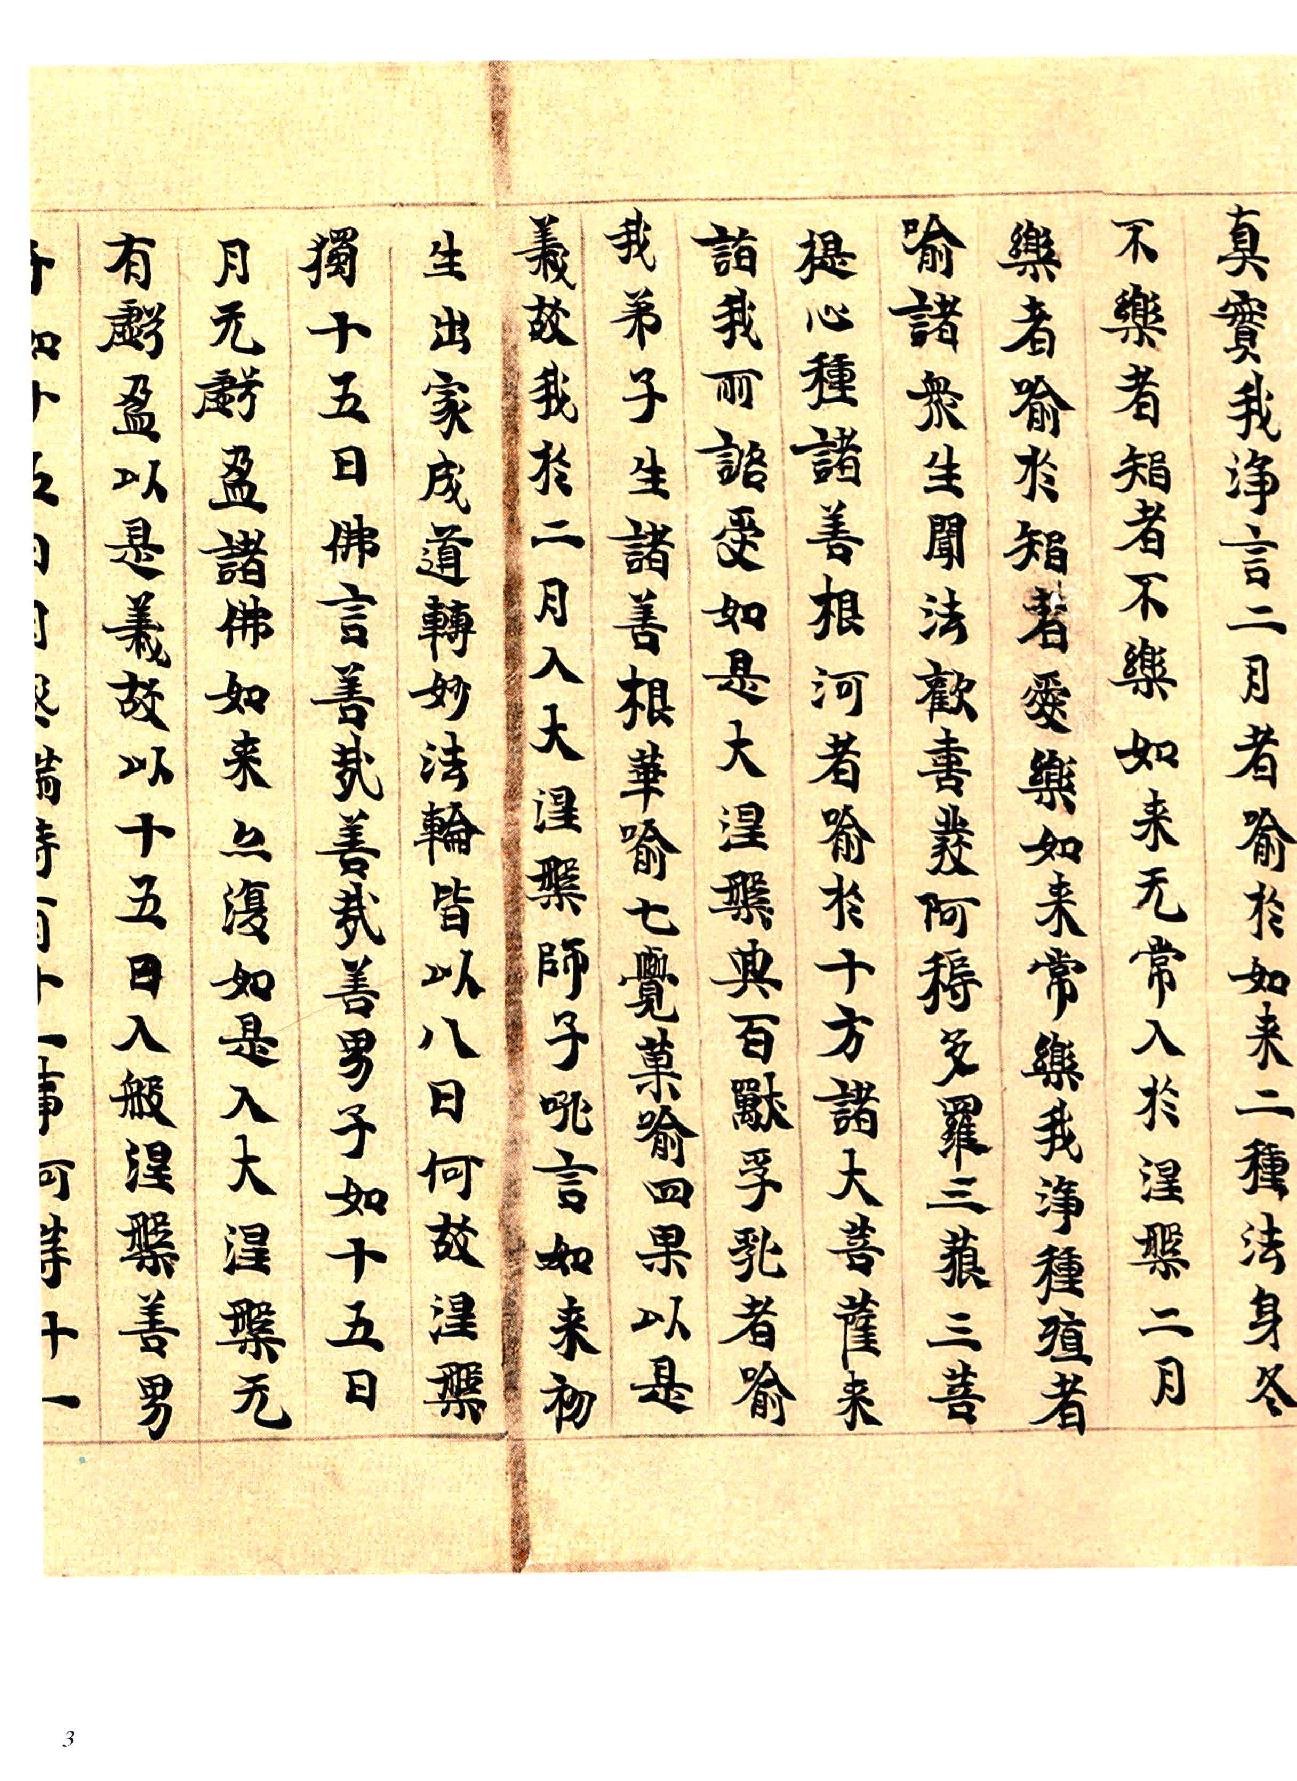 真實我淨言二月者喻於如来二種法身冬
不樂者智者不樂如来无常入於涅槃二月
樂者喻於智者愛樂如来常樂我淨種殖者
喻諸衆生聞法歡喜發阿耨多羅三藐三菩
提心種諸善根河者喻於十方諸大菩薩来
詣我所諮受如是大涅槃典百獸孚乳者喻
我弟子生諸善根華喻七覺菓喻四果以是
義故我於二月入大涅槃師子吼言如来初
生出家成道轉妙法輪皆以八日何故涅槃
獨十五日佛言善哉善哉善男子如十五日
月无虧盈諸佛如来亦復如是入大涅槃无
有虧盈以是義故以十五日入般涅槃善男
子如十五日月盛滿時有十一事何等十一
3